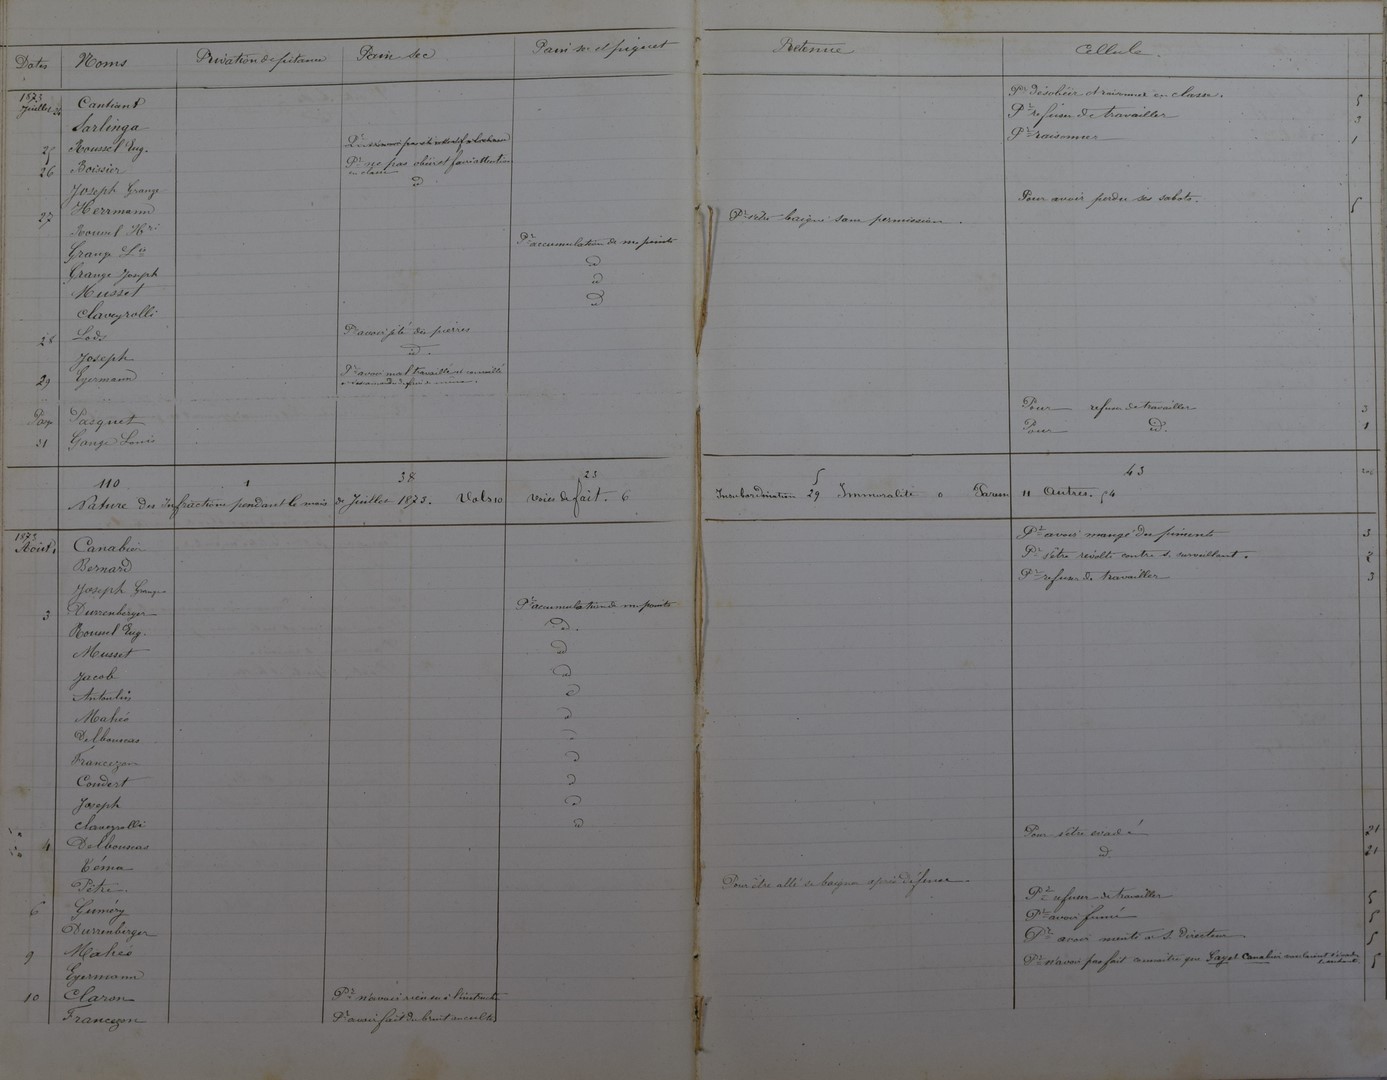 Dates Noms Privation de pitance Pain sec Pain sec et piquet Retenue Cellule
1873
Juillet 24 Cantiant Pr désobéir et raisonner en classe. 5
Sarlinga Pr refuser de travailler 3
25 Roussel Eug. Pr raisonner 1
26 Boissier Pr ne pas obéir et faire attention
en classe
Joseph Grange d Pour avoir perdu ses sabots. 5
27 Herrmann Pr s'être baigné sans permission.
Roussel Hri Pr accumulation de mv points
Grange Ls d
Grange Joseph d
Musset d
Claveyrolli
28 Lods Pr avoir jeté des pierres
Joseph d.
29 Egermann Pr avoir mal travaillé
Pasquet Pour refuser de travailler 3
31 Grange Louis Pour d. 1
110 1 38 23 5 43
Nature des Infractions pendant le mois de Juillet 1873. Vols 10 Voies de fait. 6 Insubordination 29 Immoralité 0 Paresse 11 Autres. 54
1873
Août 1 Canabier Pr avoir mangé du piments 3
Bernard Pr s'être révolté contre s. surveillant. 2
Joseph Grange Pr refuser de travailler 3
3 Durrenberger Pr accumulation de mv points
Roussel Eug. d.
Musset d
Jacob d
d
Mahéo d
Delbounas d
Francezon d
Coudert d
Joseph d
Claveyrolli d
4 Delbounas Pour s'être évadé 21
Téma d 21
Pètre Pour être allé se baigner après défense.
6 Guméry Pr refuser de travailler 5
Durrenberger Pr avoir fumé 5
9 Mahéo Pr avoir menti à M. Directeur 5
Egermann Pr n'avoir pas fait connaître que Sary et Canabier voulaient s'évader 5
10 Claron Pr n'avoir rien su à l'instruct.
Francezon Pr avoir fait du bruit au culte